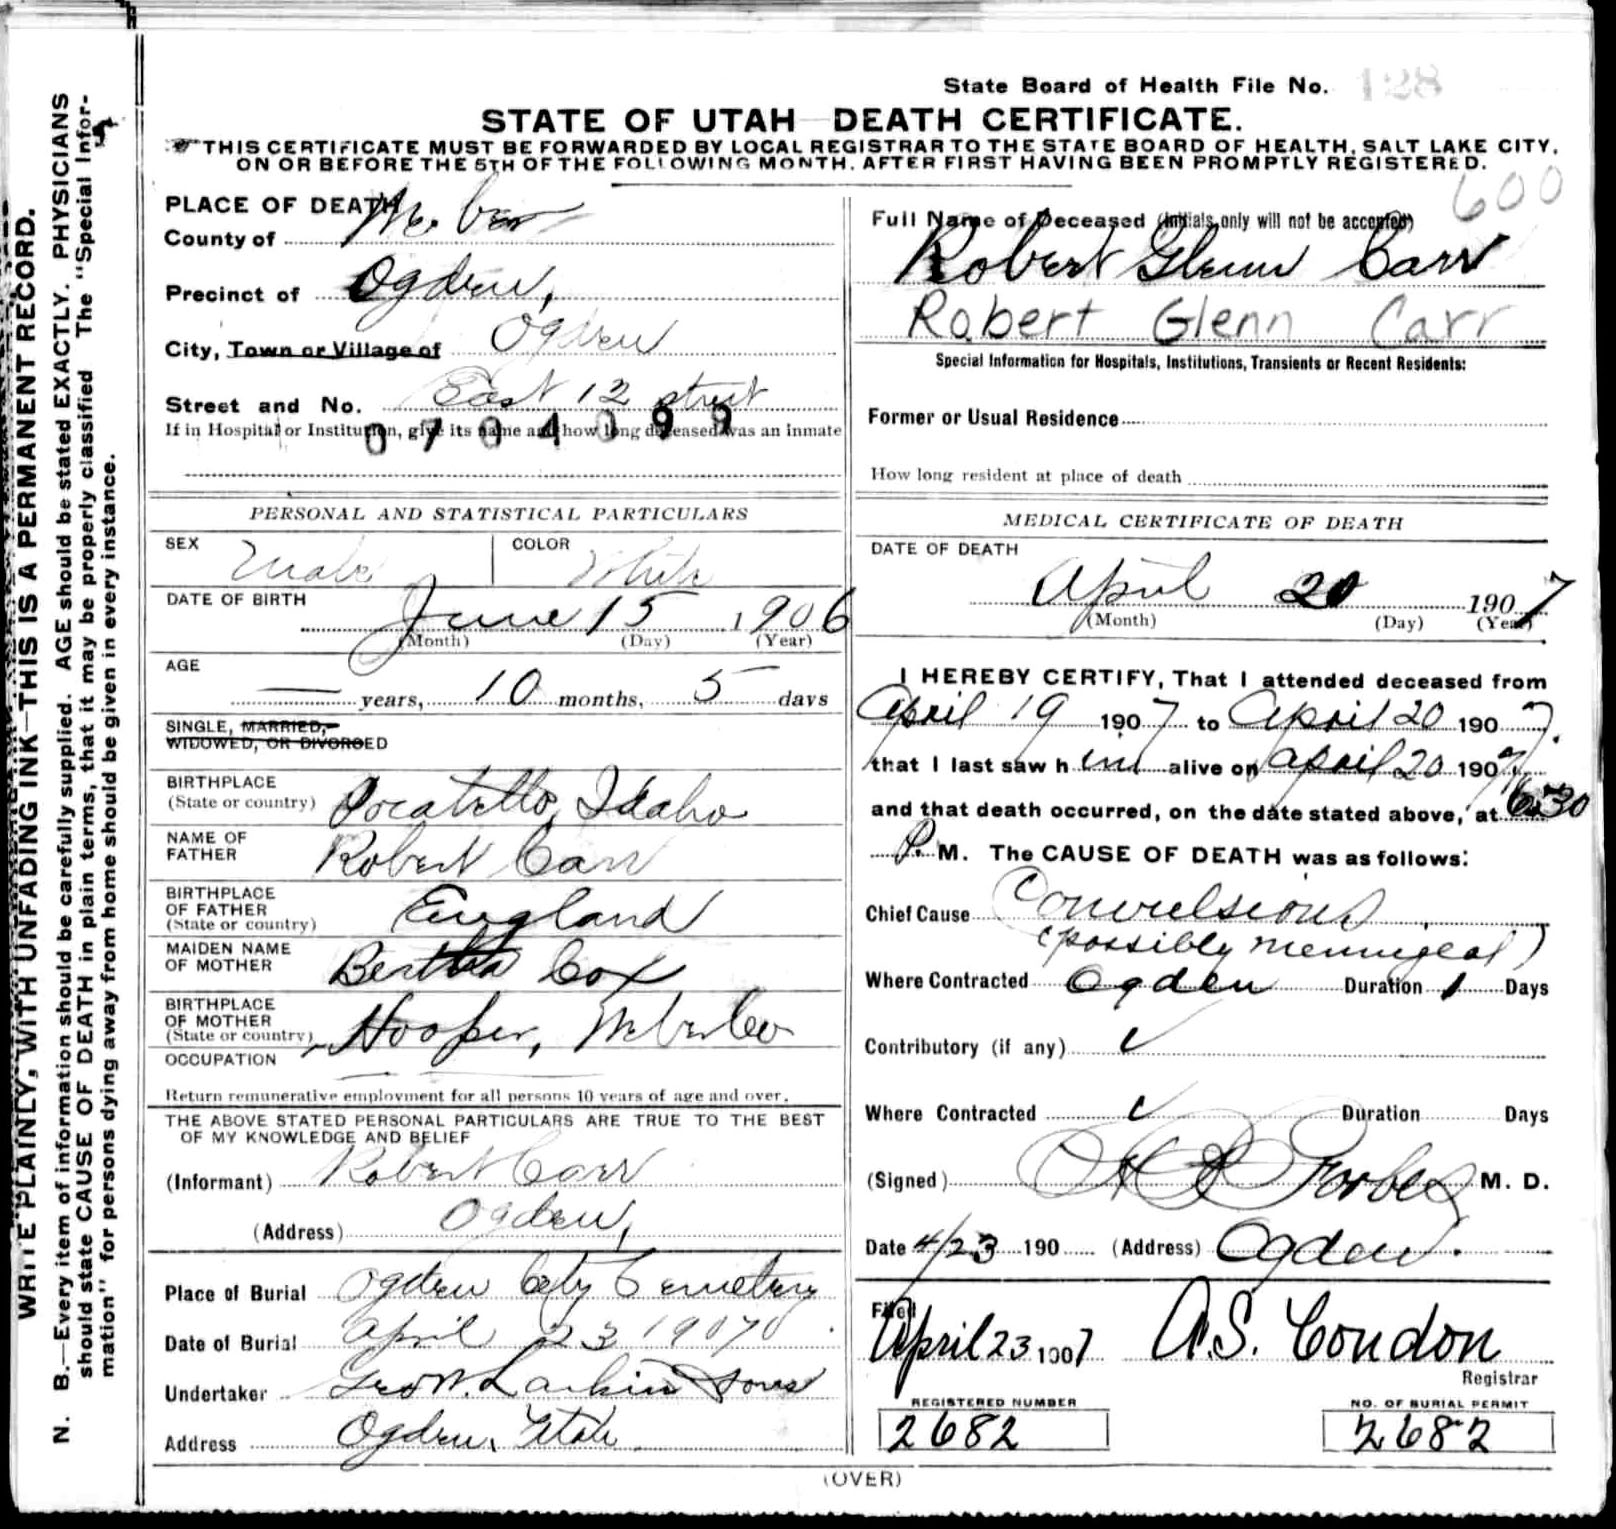 State Board of Health File No. 128
STATE OF UTAH DEATH CERTIFICATE.
THIS CERTIFICATE MUST BE FORWARDED BY LOCAL REGISTRAR TO THE STATE BOARD OF HEALTH, SALT LAKE CITY,
ON OR BEFORE THE 5TH OF THE FOLLOWING MONTH, AFTER FIRST HAVING BEEN PROMPTLY REGISTERED.
600
WRITE PLAINLY, WITH UNFADING INK—THIS IS A PERMANENT RECORD.
N. B.—Every item of information should be carefully supplied. AGE should be stated EXACTLY. PHYSICIANS
should state CAUSE OF DEATH in plain terms, that it may be properly classified The "Special Infor-
mation" for persons dying away from home should be given in every instance.
PLACE OF DEATH
County of Weber
Precinct of Ogden,
City, Town or Village of Ogden
Street and No. East 12 street
If in Hospital or Institution, give its name and how long deceased was an inmate
0704099
PERSONAL AND STATISTICAL PARTICULARS
SEX Male COLOR White
DATE OF BIRTH
June 15 1906
(Month) (Day) (Year)
AGE
— years, 10 months, 5 days
SINGLE, MARRIED,
WIDOWED, OR DIVORCED
BIRTHPLACE
(State or country) Pocatello, Idaho
NAME OF
FATHER Robert Carr
BIRTHPLACE
OF FATHER
(State or country) England
MAIDEN NAME
OF MOTHER Bertha Cox
BIRTHPLACE
OF MOTHER
(State or country) Hooper, Weber Co
OCCUPATION
Return remunerative employment for all persons 10 years of age and over.
THE ABOVE STATED PERSONAL PARTICULARS ARE TRUE TO THE BEST
OF MY KNOWLEDGE AND BELIEF
(Informant) Robert Carr
(Address) Ogden,
Place of Burial Ogden City Cemetery
Date of Burial April 23 1907
Undertaker Geo W. Larkin & Sons
Address Ogden, Utah
Full Name of Deceased (Initials only will not be accepted)
Robert Glenn Carr
Robert Glenn Carr
Special Information for Hospitals, Institutions, Transients or Recent Residents:
Former or Usual Residence
How long resident at place of death
MEDICAL CERTIFICATE OF DEATH
DATE OF DEATH
April 20 1907
(Month) (Day) (Year)
I HEREBY CERTIFY, That I attended deceased from
April 19 1907 to April 20 1907.
that I last saw him alive on April 20 1907,
and that death occurred, on the date stated above, at 6:30
P. M. The CAUSE OF DEATH was as follows:
Chief Cause Convulsions
(possibly meningeal)
Where Contracted Ogden Duration 1 Days
Contributory (if any)
Where Contracted Duration Days
(Signed) Forbes M. D.
Date 4/23 190 (Address) Ogden.
Filed
April 23 1907 A.S. Condon
Registrar
REGISTERED NUMBER
2682
NO. OF BURIAL PERMIT
2682
(OVER)